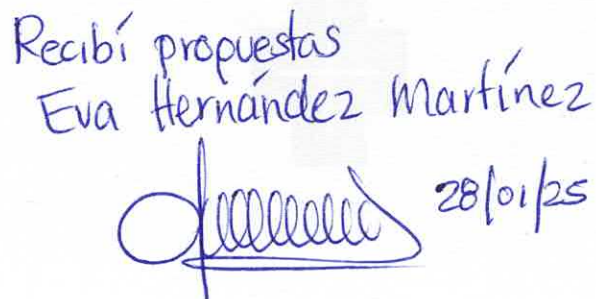 Recibí propuestas
Eva Hernández Martínez
28/01/25